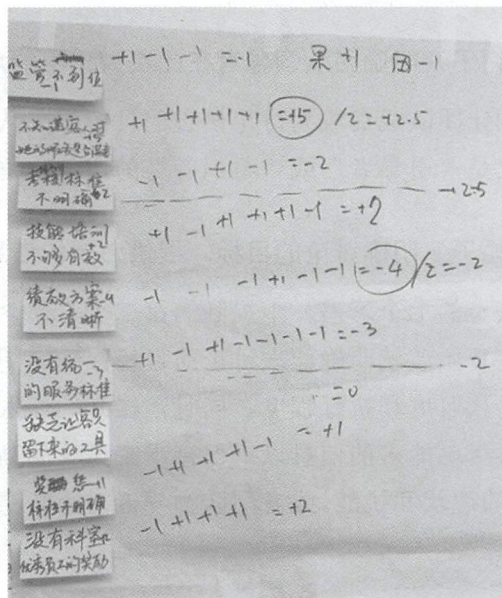 监管不到位
-1
+1 -1 -1 = -1 果 +1 因 -1
不知道客人对
+1 +1 +1 +1 +1 = +5 /2 = +2.5
考核标准
不明确 -2
-1 -1 +1 -1 = -2
→ 2.5
技能培训
不够有效 +2
+1 -1 +1 +1 +1 -1 = +2
绩效方案 -4
不清晰
-1 -1 -1 +1 -1 -1 = -4 /2 = -2
没有统一 -3
的服务标准
+1 -1 +1 -1 -1 -1 -1 = -3
-2
缺乏让客人
留下来的工具
= 0
标准不明确
-1 +1 +1 +1 -1 = +1
没有科室
优秀员工的奖励
-1 +1 +1 +1 = +2